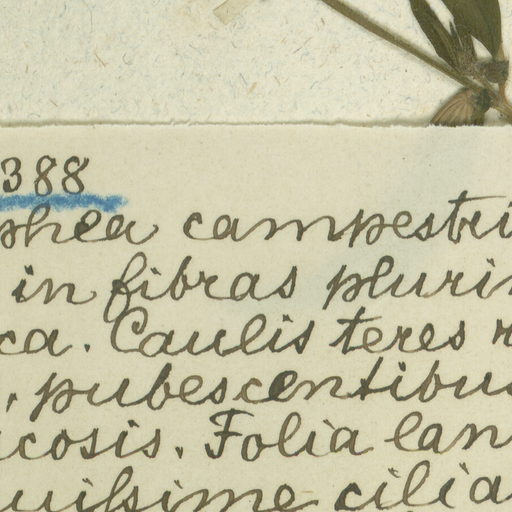 388
phea campestri
in fibras plurin
ca. Caulis teres r
, pubescentibus
icosis. Folia lan
uissime cilia